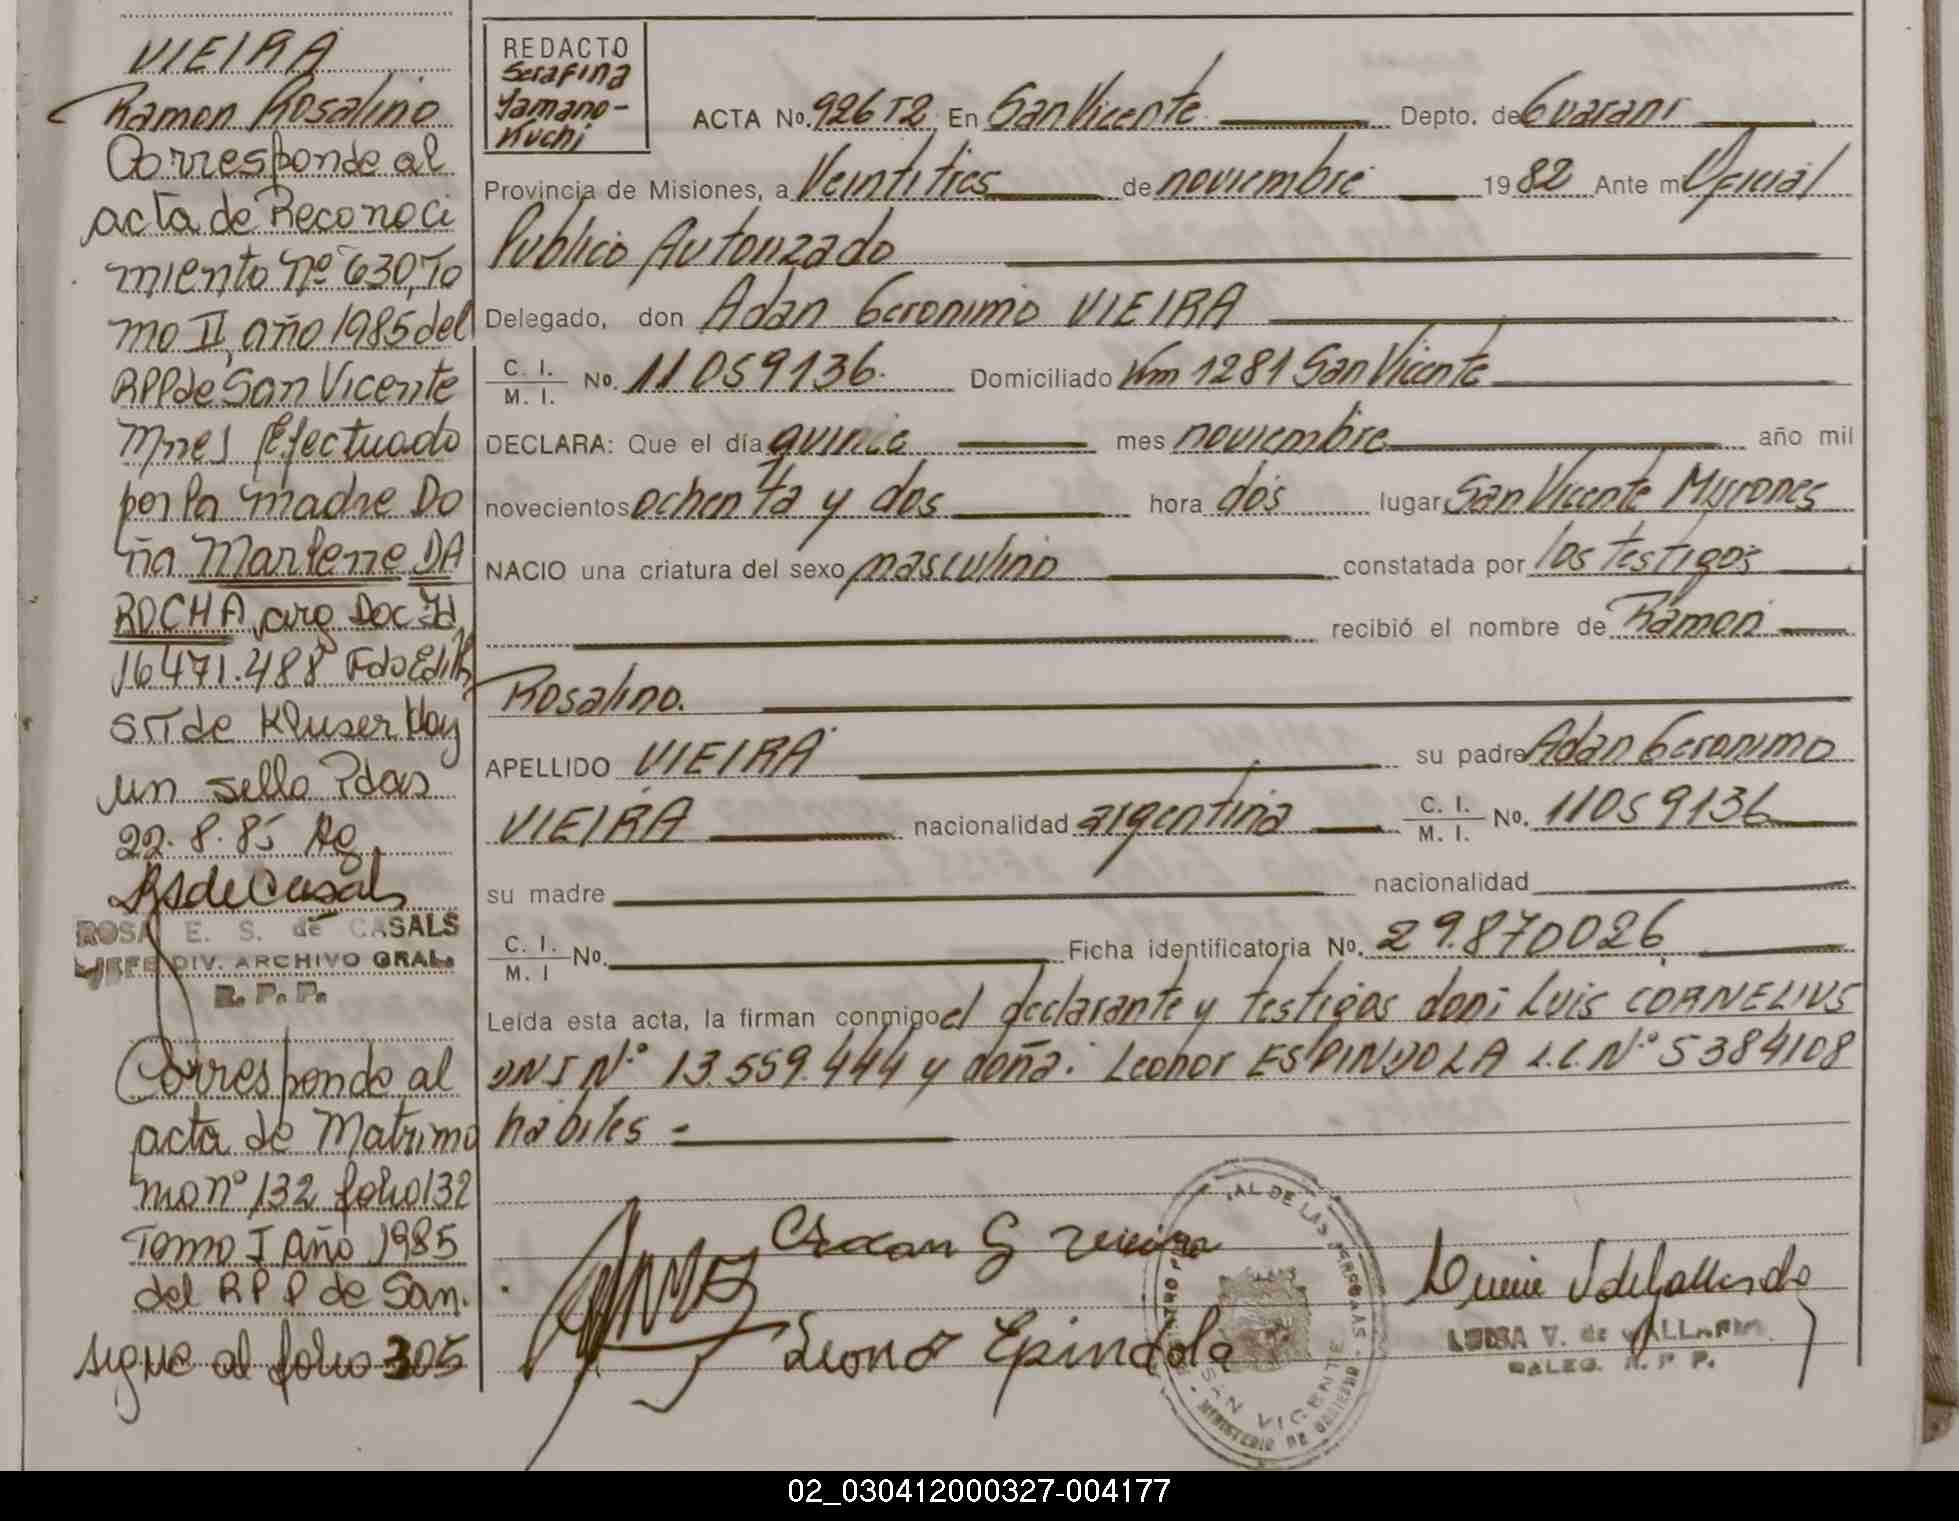 VIEIRA
Ramon Rosalino
Corresponde al
acta de Reconoci
miento Nº 630, To
mo II, año 1985 del
RPP de San Vicente
Mnes Efectuado
por la madre Do
ña Marlene DA
ROCHA, arg Doc Id
16471.488 Fdo Edith
ST de Kluser Hay
un sello Pdas
22.8.85 Ag
RSdeCasals
ROSA E. S. de CASALS
JEFE DIV. ARCHIVO GRAL.
R. P. P.
Corresponde al
acta de Matrimo
nio nº 132 folio 132
Tomo I año 1985
del RPP de San.
sigue al folio 305
REDACTO
Serafina
Yamano-
Kuchi
ACTA No. 926 T2 En San Vicente Depto. de Guarani
Provincia de Misiones, a Veintitres de noviembre 1982 Ante mi Oficial
Publico Autorizado
Delegado, don Adan Geronimo VIEIRA
C. I. / M. I. No. 11059136. Domiciliado Km 1281 San Vicente
DECLARA: Que el día quince mes noviembre año mil
novecientos ochenta y dos hora dos lugar San Vicente Misiones
NACIO una criatura del sexo masculino constatada por los testigos
recibió el nombre de Ramon
Rosalino.
APELLIDO VIEIRA su padre Adan Geronimo
VIEIRA nacionalidad argentina C. I. / M. I. No. 11059136
su madre nacionalidad
C. I. / M. I No. Ficha identificatoria No. 29.870026
Leída esta acta, la firman conmigo el declarante y testigos don: Luis CORNELIUS
DNI Nº 13.559.444 y doña: Leonor ESPINDOLA L.C. Nº 5384108
habiles -
Adan G Vieira
Leonor Epindola
SAN VICENTE
MINISTERIO DE GOBIERNO
LUISA V. de GALLARDO
DALEG. R. P P.
02_030412000327-004177